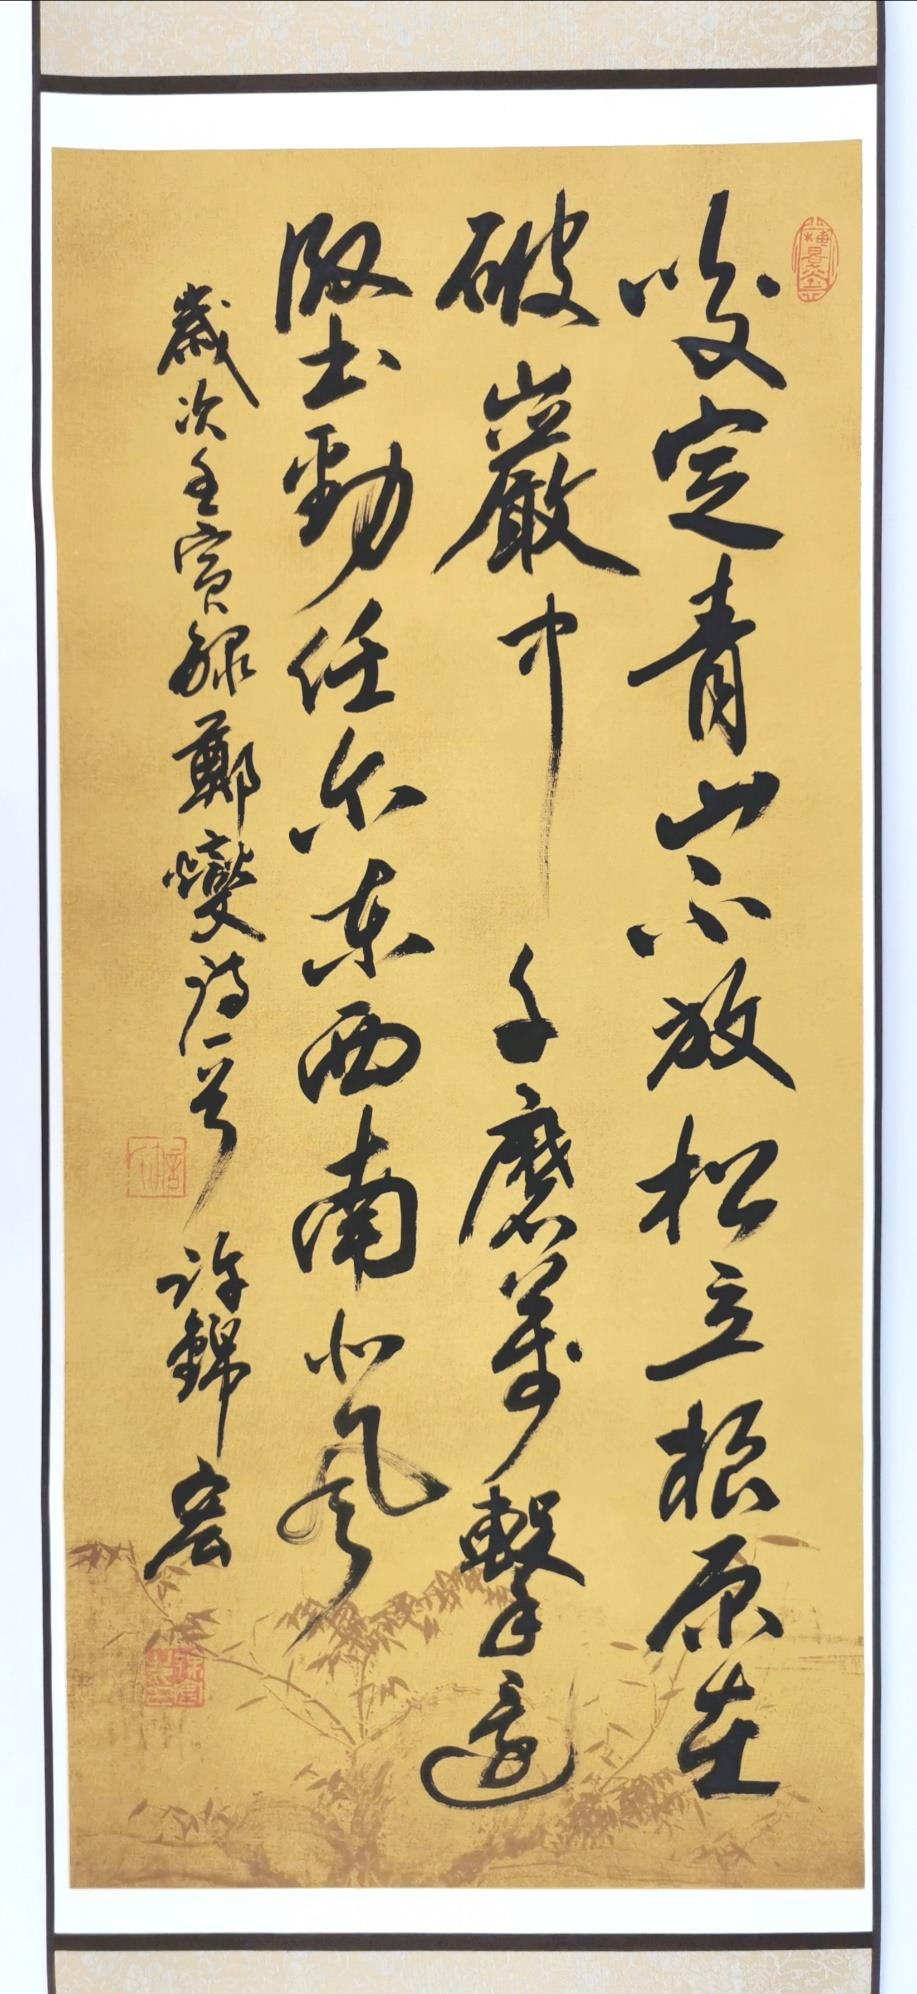 咬定青山不放松立根原在
破巖中千磨萬擊還
堅勁任尔东西南北风
歲次壬寅録鄭燮詩一首
許錦宏